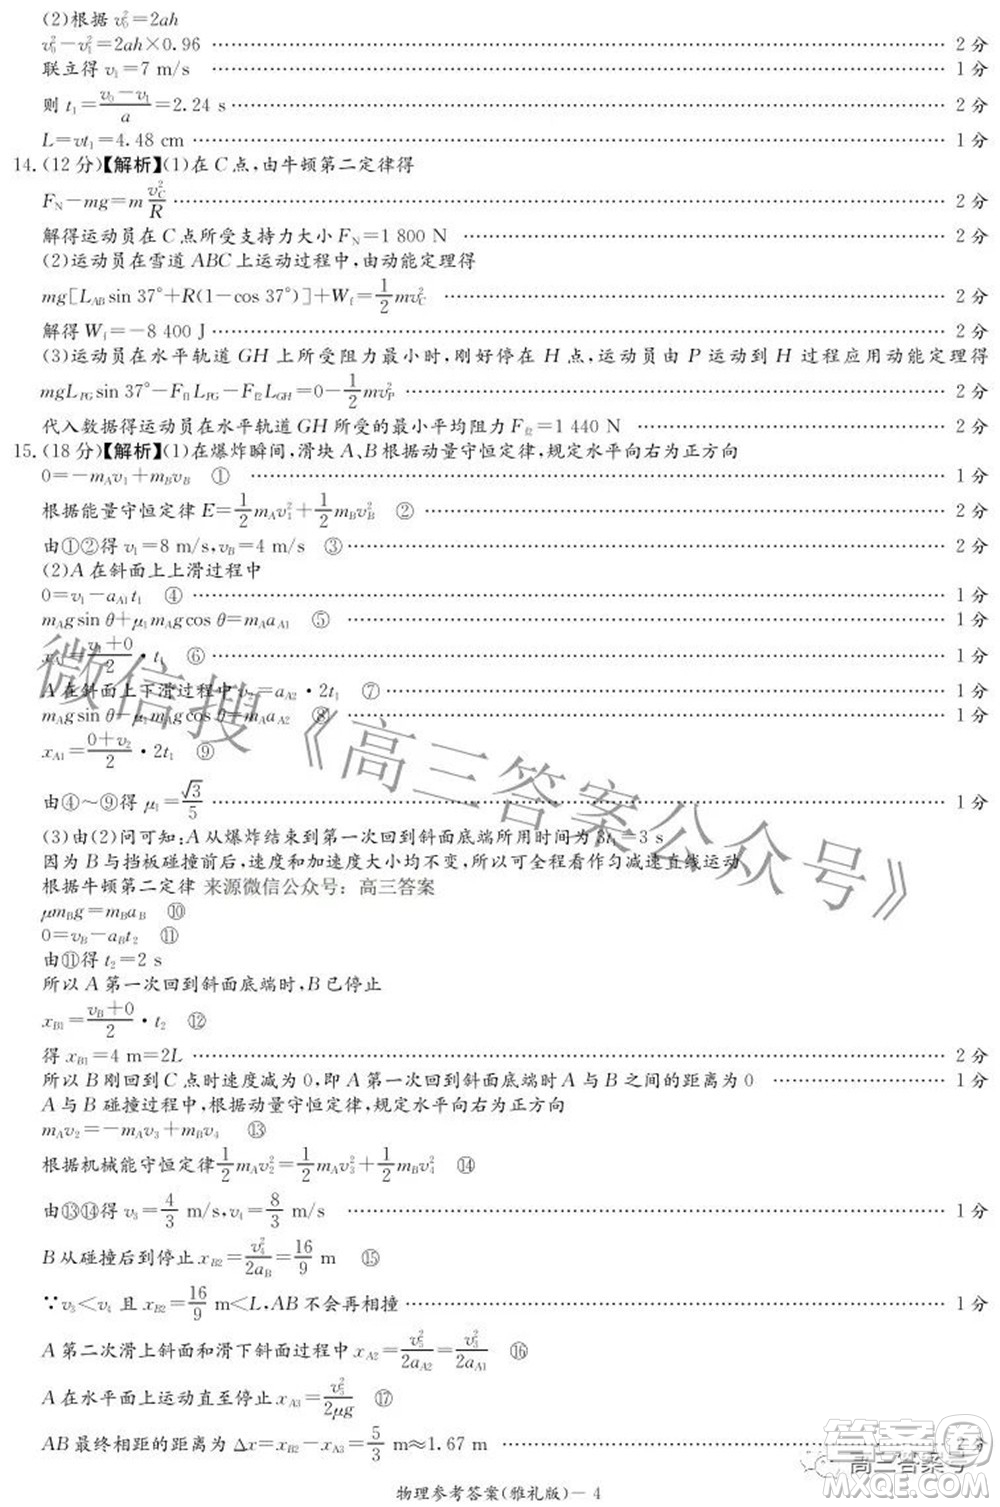 (2)根据 v₀²=2ah
v₀²−v₁²=2ah×0.96 …… 2分
联立得 v₁=7 m/s …… 1分
则 t₁=(v₀−v₁)/a=2.24 s …… 2分
L=vt₁=4.48 cm …… 1分
14.(12分)【解析】(1)在C点,由牛顿第二定律得
F_N−mg=m v_C²/R …… 2分
解得运动员在C点所受支持力大小 F_N=1 800 N …… 2分
(2)运动员在雪道ABC上运动过程中,由动能定理得
mg[L_AB sin 37°+R(1-cos 37°)]+W_f=1/2 mv_C² …… 2分
解得 W_f=−8 400 J …… 2分
(3)运动员在水平轨道GH上所受阻力最小时,刚好停在H点,运动员由P运动到H过程应用动能定理得
mgL_PG sin 37°−F_f1 L_PG−F_f2 L_GH=0−1/2 mv_P² …… 2分
代入数据得运动员在水平轨道GH所受的最小平均阻力 F_f2=1 440 N …… 2分
15.(18分)【解析】(1)在爆炸瞬间,滑块A、B根据动量守恒定律,规定水平向右为正方向
0=−m_A v₁+m_B v_B ① …… 1分
根据能量守恒定律 E=1/2 m_A v₁²+1/2 m_B v_B² ② …… 2分
由①②得 v₁=8 m/s,v_B=4 m/s ③ …… 2分
(2)A在斜面上上滑过程中
0=v₁−a_A1 t₁ ④ …… 1分
m_A g sin θ+μ₁m_A g cos θ=m_A a_A1 ⑤ …… 1分
x_A1=(v₁+0)/2·t₁ ⑥ …… 1分
A在斜面上下滑过程中 v₂=a_A2·2t₁ ⑦ …… 1分
m_A g sin θ−μ₁m_A g cos θ=m_A a_A2 ⑧ …… 1分
x_A1=(0+v₂)/2·2t₁ ⑨
由④～⑨得 μ₁=√3/5 …… 1分
(3)由(2)问可知:A从爆炸结束到第一次回到斜面底端所用时间为 3t₁=3 s
因为B与挡板碰撞前后,速度和加速度大小均不变,所以可全程看作匀减速直线运动
根据牛顿第二定律 来源微信公众号：高三答案
μm_B g=m_B a_B ⑩
0=v_B−a_B t₂ ⑪
由⑪得 t₂=2 s
所以A第一次回到斜面底端时,B已停止
x_B1=(v_B+0)/2·t₂ ⑫
得 x_B1=4 m=2L …… 2分
所以B刚回到C点时速度减为0,即A第一次回到斜面底端时A与B之间的距离为0 …… 1分
A与B碰撞过程中,根据动量守恒定律,规定水平向右为正方向
m_A v₂=−m_A v₃+m_B v₄ ⑬
根据机械能守恒定律 1/2 m_A v₂²=1/2 m_A v₃²+1/2 m_B v₄² ⑭
由⑬⑭得 v₃=4/3 m/s,v₄=8/3 m/s …… 1分
B从碰撞后到停止 x_B2=v₄²/2a_B=16/9 m ⑮
∵v₃<v₄ 且 x_B2=16/9 m<L,AB不会再相撞 …… 1分
A第二次滑上斜面和滑下斜面过程中 x_A2=v₅²/2a_A2=v₃²/2a_A1 ⑯
A在水平面上运动直至停止 x_A3=v₅²/2μg ⑰
AB最终相距的距离为 Δx=x_B2−x_A3=5/3 m≈1.67 m …… 2分
物理参考答案(雅礼版)－4
微信搜《高三答案公众号》
高三答案号
答案圈
MXQE.COM